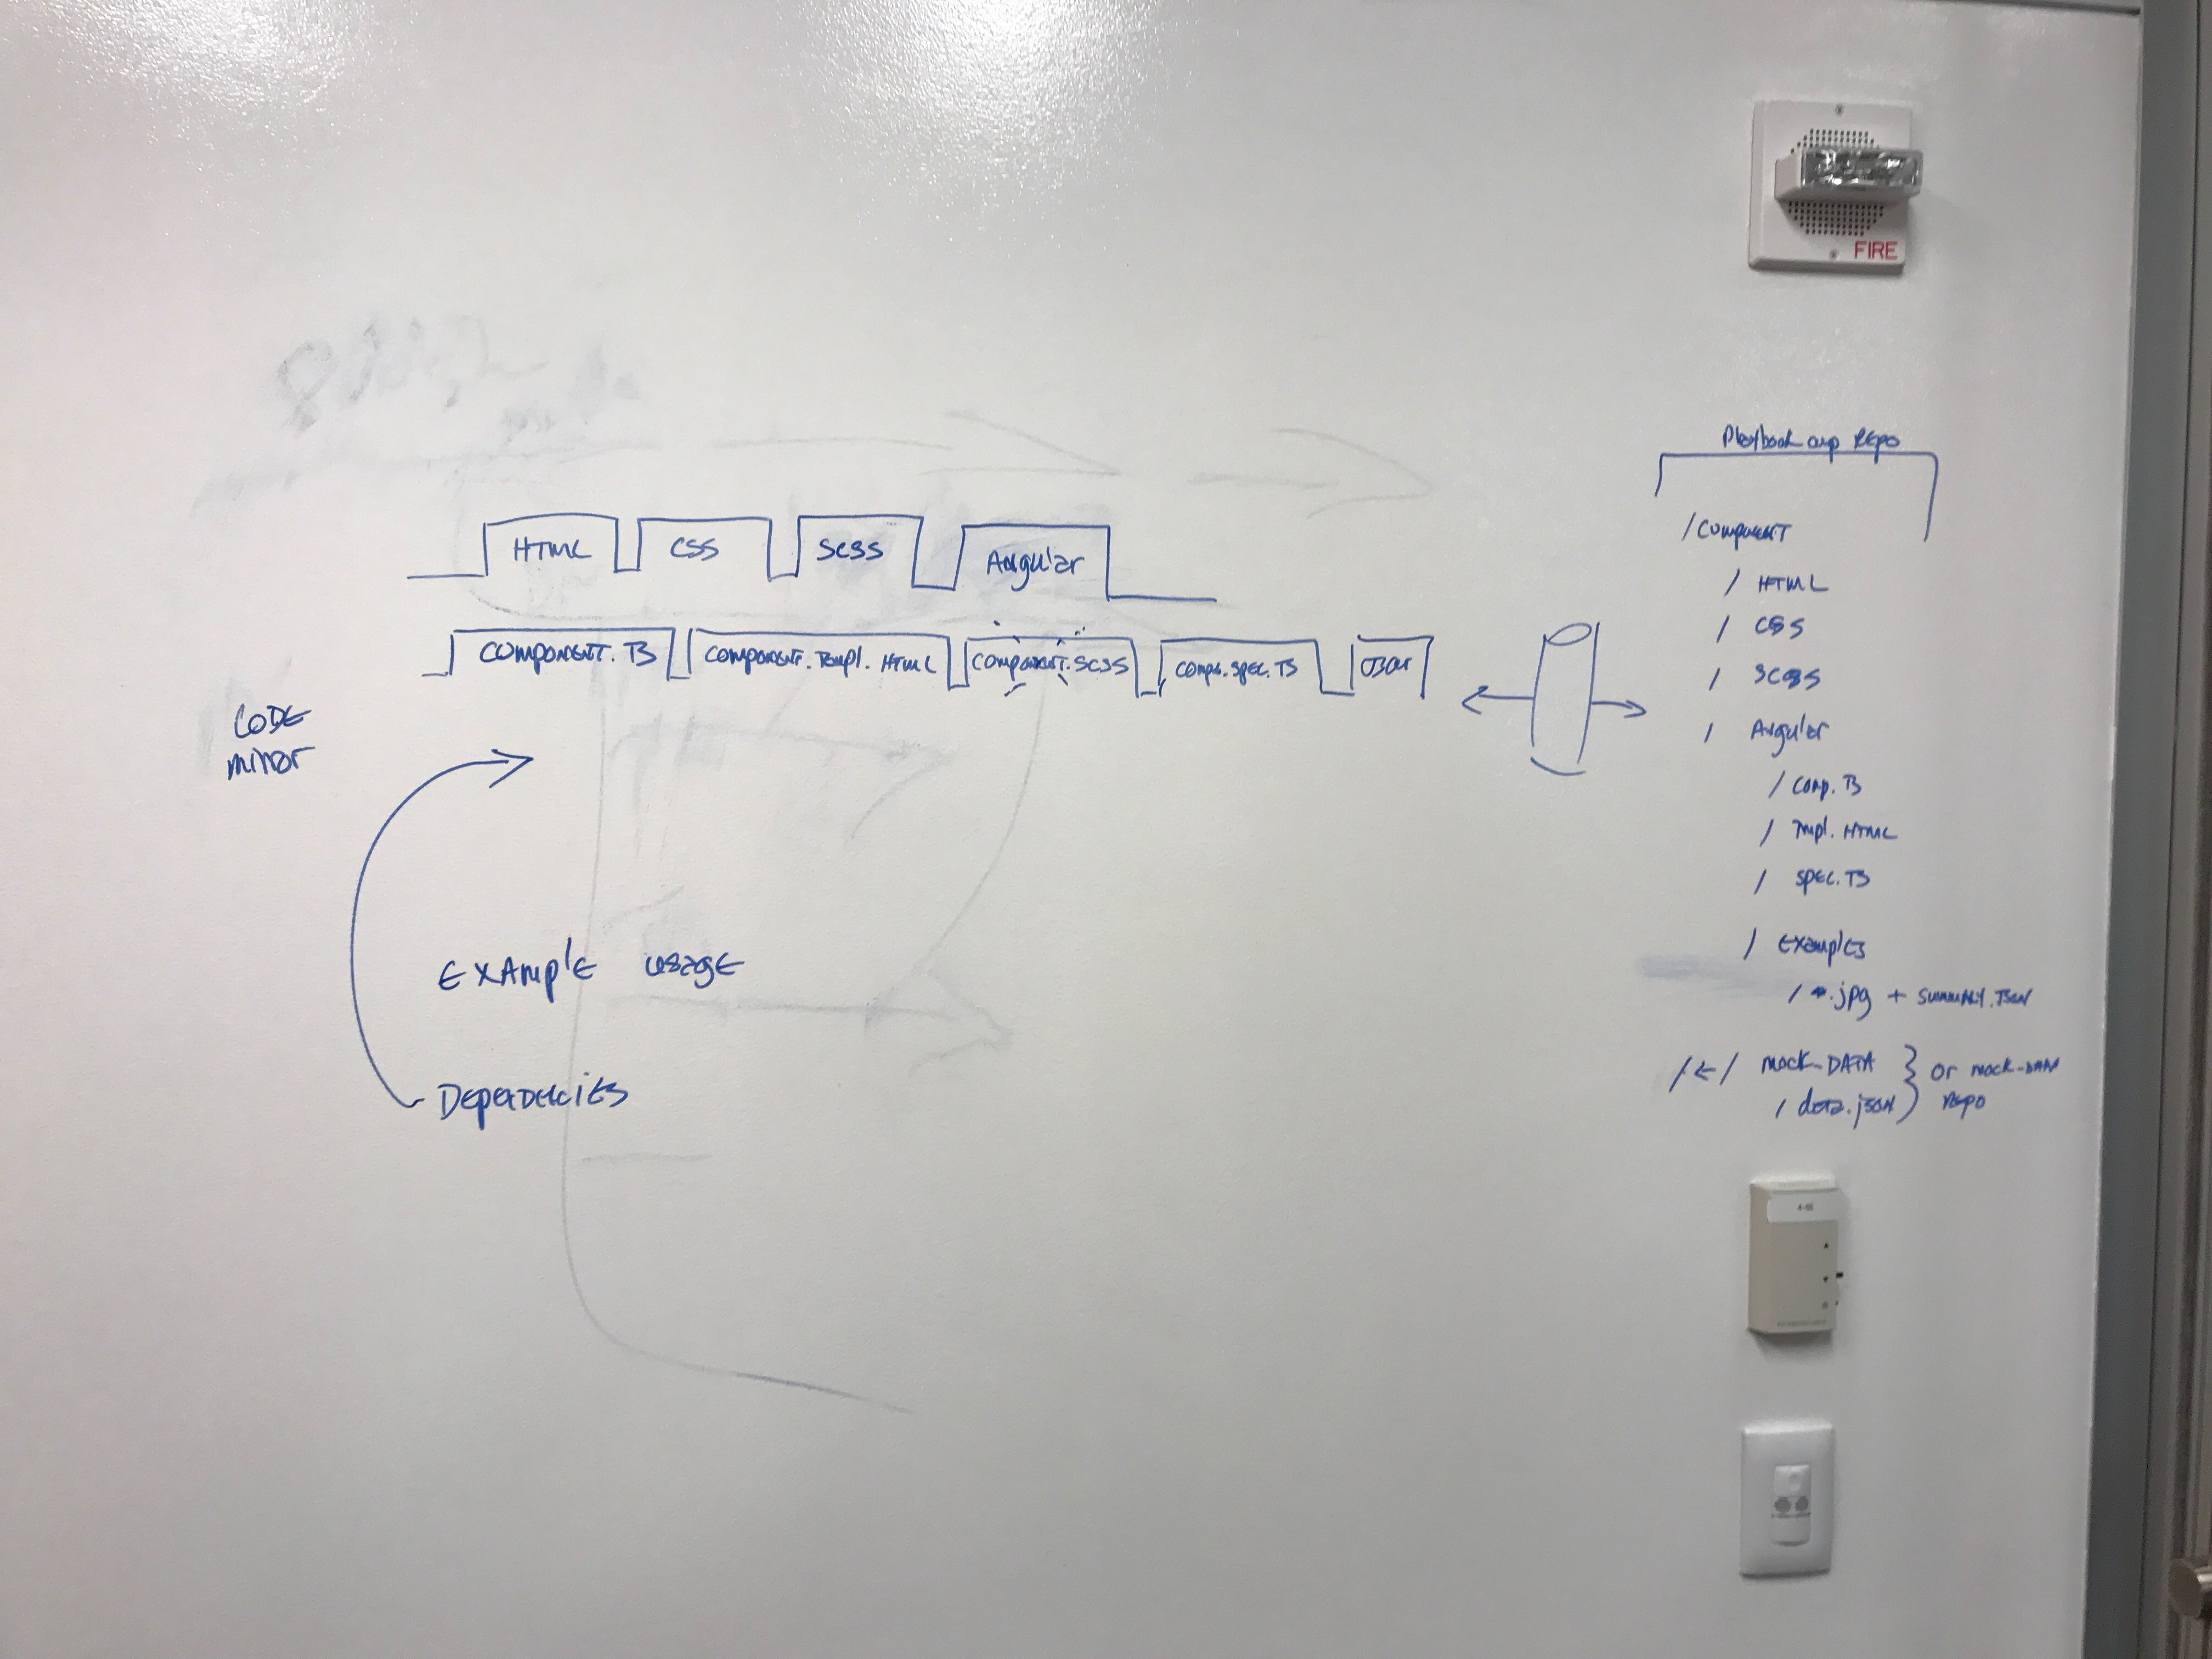 FIRE
Playbook comp Repo
HTML CSS SCSS Angular
Component.TS Component.Tmpl.HTML Component.SCSS Comp.Spec.TS JSON
CODE
mirror
Example usage
Dependencies
/Component
/ HTML
/ CSS
/ SCSS
/ Angular
/ Comp.TS
/ Tmpl.HTML
/ Spec.TS
/ Examples
/ *.jpg + summary.JSON
/←/ mock-DATA } or mock-DATA
/ data.json } Repo